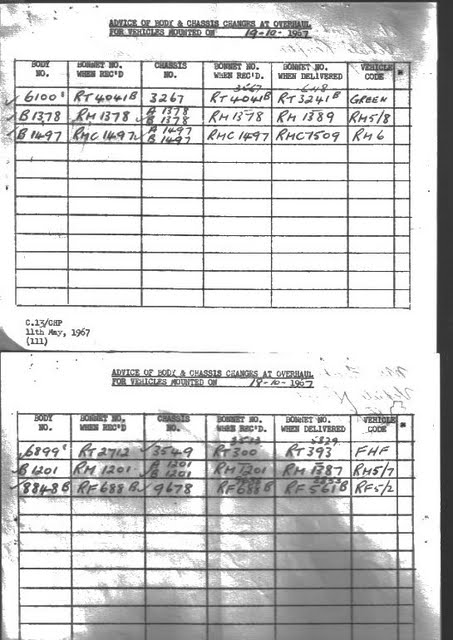 ADVICE OF BODY & CHASSIS CHANGES AT OVERHAUL
FOR VEHICLES MOUNTED ON 19-10-1967
BODY NO. BONNET NO. WHEN REC'D CHASSIS NO. BONNET NO. WHEN REC'D. BONNET NO. WHEN DELIVERED VEHICLE CODE *
3667 648
6100 RT4041B 3267 RT4041B RT3241B GREEN
B1378 RM 1378 A 1378 B 1378 RM1378 RM 1389 RM5/8
B1497 RMC 1497 A 1497 B 1497 RMC1497 RMC1509 RM6
C.13/CHP
11th May, 1967
(111)
ADVICE OF BODY & CHASSIS CHANGES AT OVERHAUL
FOR VEHICLES MOUNTED ON 18-10-1967
BODY NO. BONNET NO. WHEN REC'D CHASSIS NO. BONNET NO. WHEN REC'D. BONNET NO. WHEN DELIVERED VEHICLE CODE
6899 RT2712 3549 RT300 RT393 FHF
B1201 RM 1201 A 1201 B 1201 RM1201 RM1387 RM5/7
8848B RF688B 9678 RF688B RF561B RF5/2